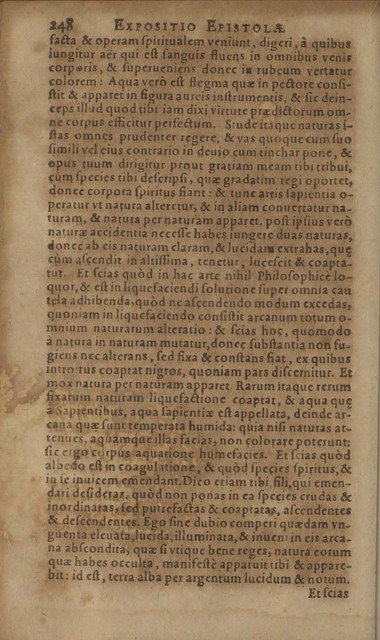 248 EXPOSITIO EPISTOLÆ
facta & operam spiritualem veniunt, digeri, à quibus
iungitur aër qui est sanguis fluens in omnibus venis
corporis, & superueniens donec in rubeum vertatur
colorem: Aqua verò est flegma quæ in pectore consi-
stit & apparet in figura aureis instrumentis, & sic dein-
ceps illud quod tibi iam dixi virtute prædictorum om-
ne corpus efficitur perfectum. Stude itaque naturas i-
stas omnes prudenter regere, & vas quoque cum suo
simili vel eius contrario in deuio cum tinchar pone, &
opus tuum dirigitur prout gratiam meam tibi tribui,
cum species tibi descripsi, quæ gradatim regi oportet,
donec corpora spiritus fiant: & tunc artis sapientia o-
peratur vt natura alteretur, & in aliam conuertatur na-
turam, & natura per naturam apparet, post ipsius verò
naturæ accidentia necesse habes iungere duas naturas,
donec ab eis naturam claram, & lucidam extrahas, quæ
cùm ascendit in altissima, tenetur, lucescit & coapta-
tur. Et scias quòd in hac arte nihil Philosophicè lo-
quor, & est in liquefaciendi solutione super omnia cau
tela adhibenda, quòd ne ascendendo modum excedas,
quoniam in liquefaciendo consistit arcanum totum o-
mnium naturarum alteratio: & scias hoc, quomodo
à natura in naturam mutatur, donec substantia non fu-
giens nec alterans, sed fixa & constans fiat, ex quibus
introitus coaptat nigros, quoniam pars discernitur. Et
mox natura per naturam apparet Rarum itaque rerum
fixarum naturam liquefactione coaptat, & aqua quę
à Sapientibus, aqua sapientiæ est appellata, deinde ar-
cana quæ sunt temperata humida: quia nisi naturas at-
tenues, aquamque illas facias, non colorare poterunt:
sic ergo corpus aquatione humefacies. Et scias quòd
albedo est in coagulatione, & quòd species spiritus, &
in se inuicem emendant. Dico etiam tibi fili, qui emen-
dari desideras, quòd non ponas in ea species crudas &
inordinatas, sed putrefactas & coaptatas, ascendentes
& descendentes. Ego sine dubio comperi quædam vn-
guenta eleuata, lucida, illuminata, & inueni in eis arca-
na abscondita, quæ si vtique bene reges, natura eorum
quæ habes occulta, manifestè apparuit tibi & appare-
bit: id est, terra alba per argentum lucidum & notum.
Et scias